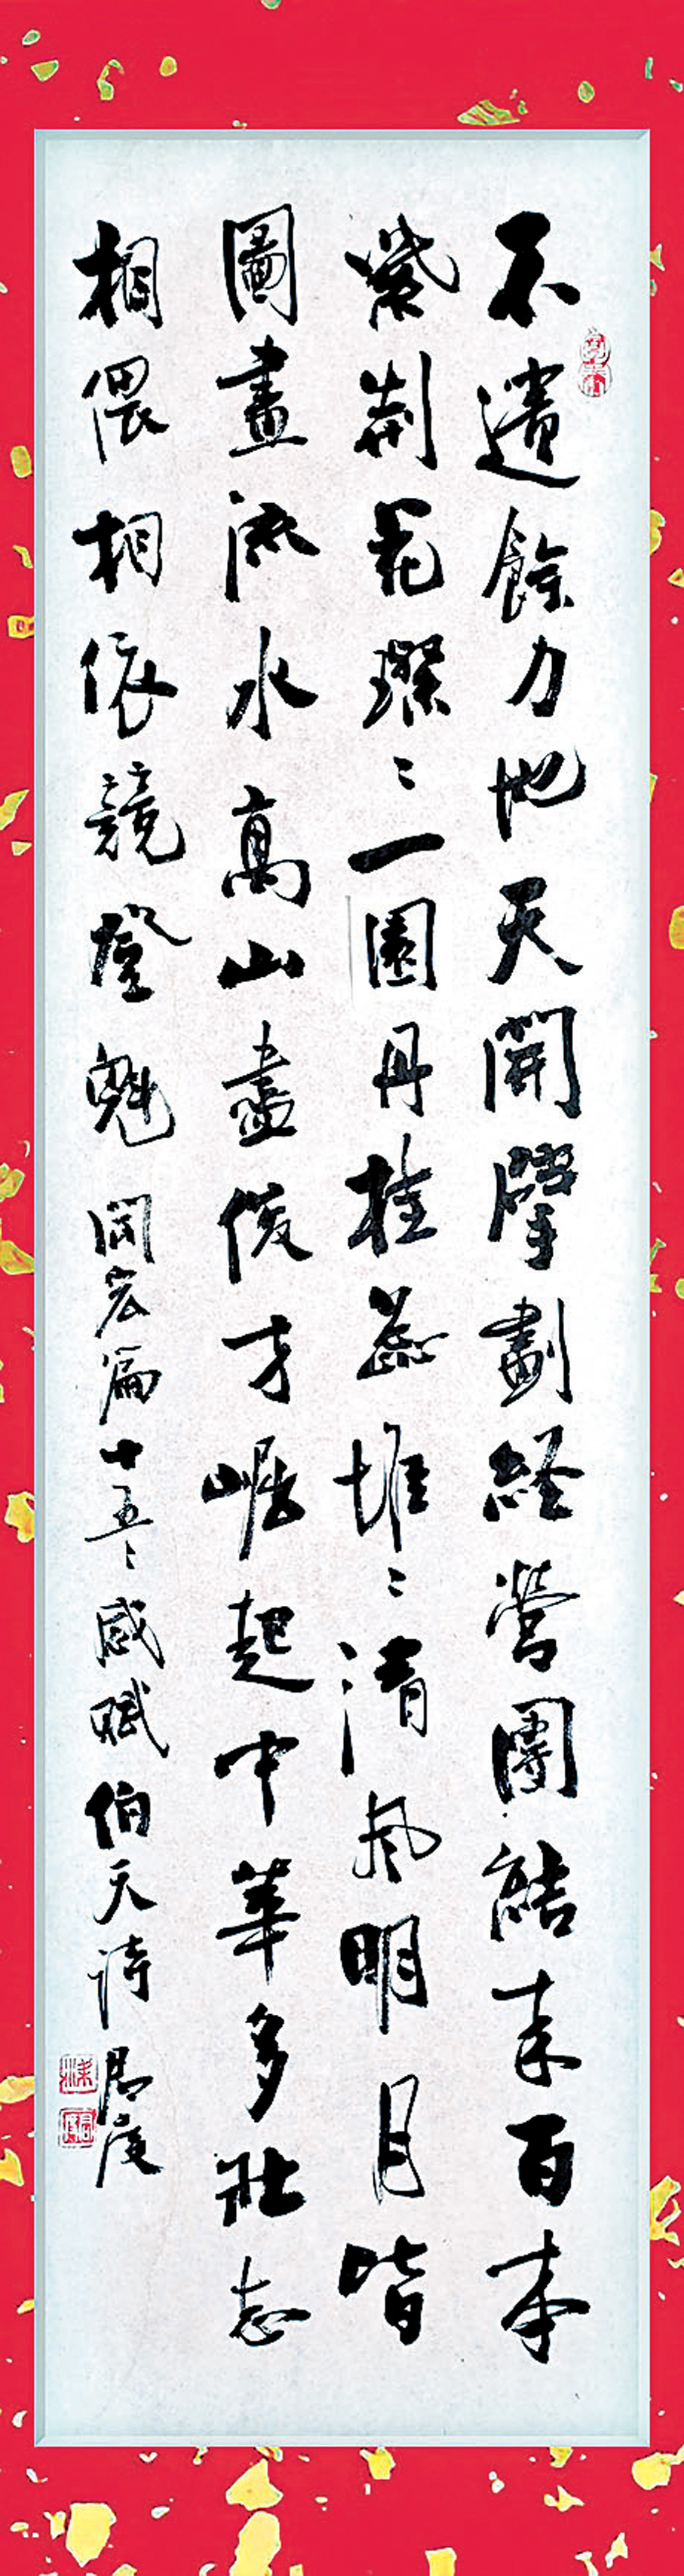 不遺餘力地天開擘劃経營團結来百本
紫荊花璨〻一園丹桂蕊堆〻清風明月皆
圖畫流水高山盡俊才崛起中華多壯志
相偎相依競登魁 宏篇十五感賦 伯天詩 君度